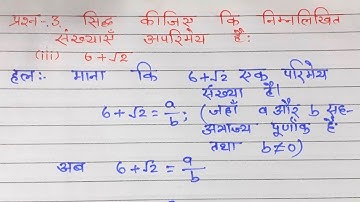 प्रश्न-3. सिद्ध कीजिए कि निम्नलिखित
संख्याएँ अपरिमेय हैं:
(iii) 6+√2
हल:- माना कि 6+√2 एक परिमेय
संख्या है।
6+√2 = a/b ; (जहाँ a और b सह-
अभाज्य पूर्णांक हैं
तथा b≠0)
अब 6+√2 = a/b